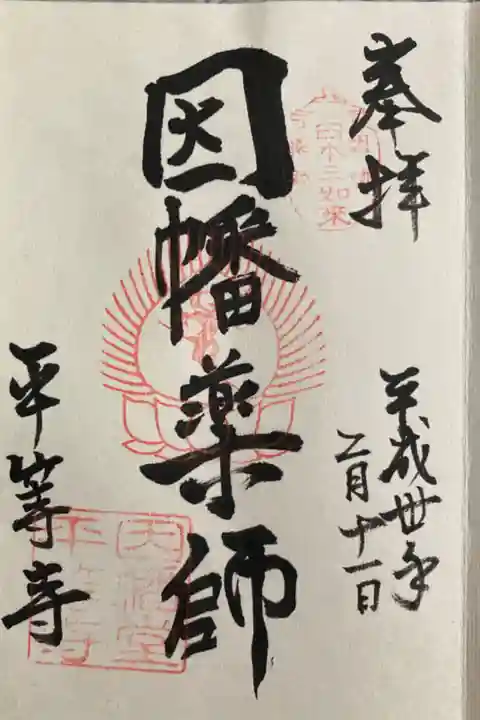 奉拝
平成卅年
二月十一日
日本三如来
因幡薬師
平等寺
因幡堂
平等寺